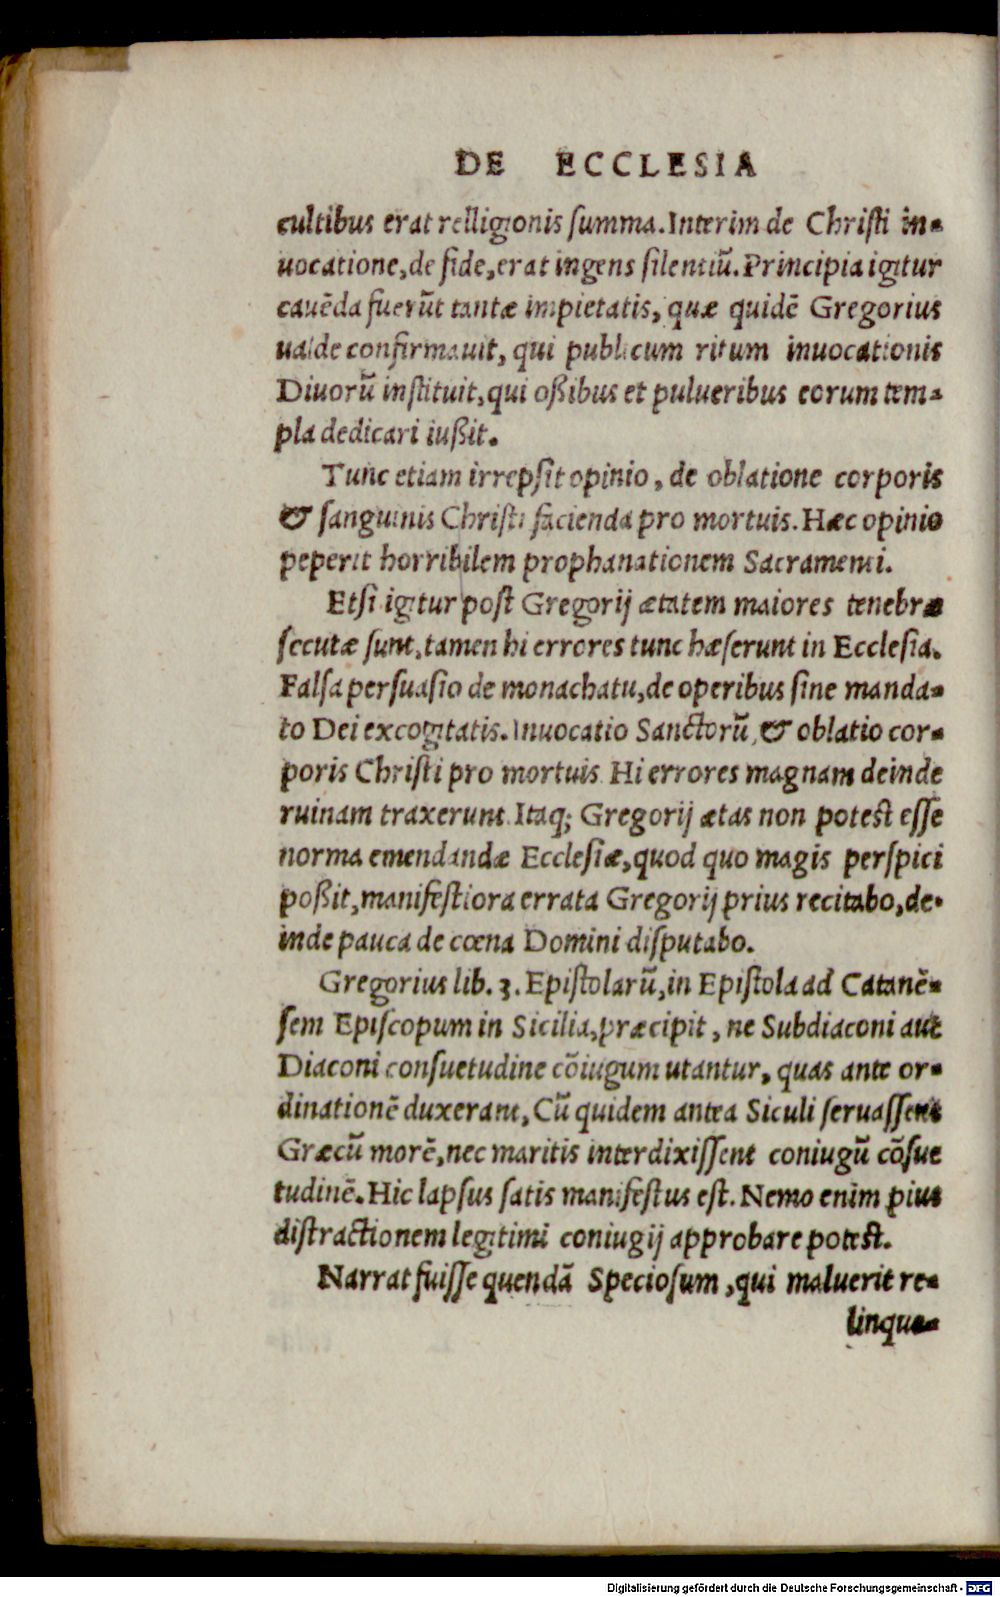 DE ECCLESIA
cultibus erat relligionis ſumma. Interim de Christi in-
uocatione, de fide, erat ingens ſilentiū. Principia igitur
cauēda fuerūt tantæ impietatis, quæ quidē Gregorius
ualde confirmauit, qui publicum ritum inuocationis
Diuorū inſtituit, qui oßibus et pulueribus eorum tem-
pla dedicari iußit.
Tunc etiam irrepſit opinio, de oblatione corporis
& ſanguinis Chriſti facienda pro mortuis. Hæc opinio
peperit horribilem prophanationem Sacramenti.
Etſi igitur poſt Gregorij ætatem maiores tenebræ
ſecutæ ſunt, tamen hi errores tunc hæſerunt in Eccleſia.
Falſa perſuaſio de monachatu, de operibus ſine manda-
to Dei excogitatis. Inuocatio Sanctorū, & oblatio cor-
poris Chriſti pro mortuis. Hi errores magnam deinde
ruinam traxerunt. Itaq; Gregorij ætas non poteſt eſſe
norma emendandæ Eccleſiæ, quod quo magis perſpici
poßit, manifeſtiora errata Gregorij prius recitabo, de-
inde pauca de cœna Domini diſputabo.
Gregorius lib. 3. Epiſtolarū, in Epiſtola ad Catanē-
ſem Epiſcopum in Sicilia, præcipit, ne Subdiaconi aut
Diaconi conſuetudine cōiugum utantur, quas ante or-
dinationē duxerant, Cū quidem antea Siculi ſeruaſſent
Græcū morē, nec maritis interdixiſſent coniugū cōſue
tudinē. Hic lapſus ſatis manifeſtus eſt. Nemo enim pius
diſtractionem legitimi coniugij approbare poteſt.
Narrat fuiſſe quendā Specioſum, qui maluerit re-
linque-
Digitalisierung gefördert durch die Deutsche Forschungsgemeinschaft - DFG